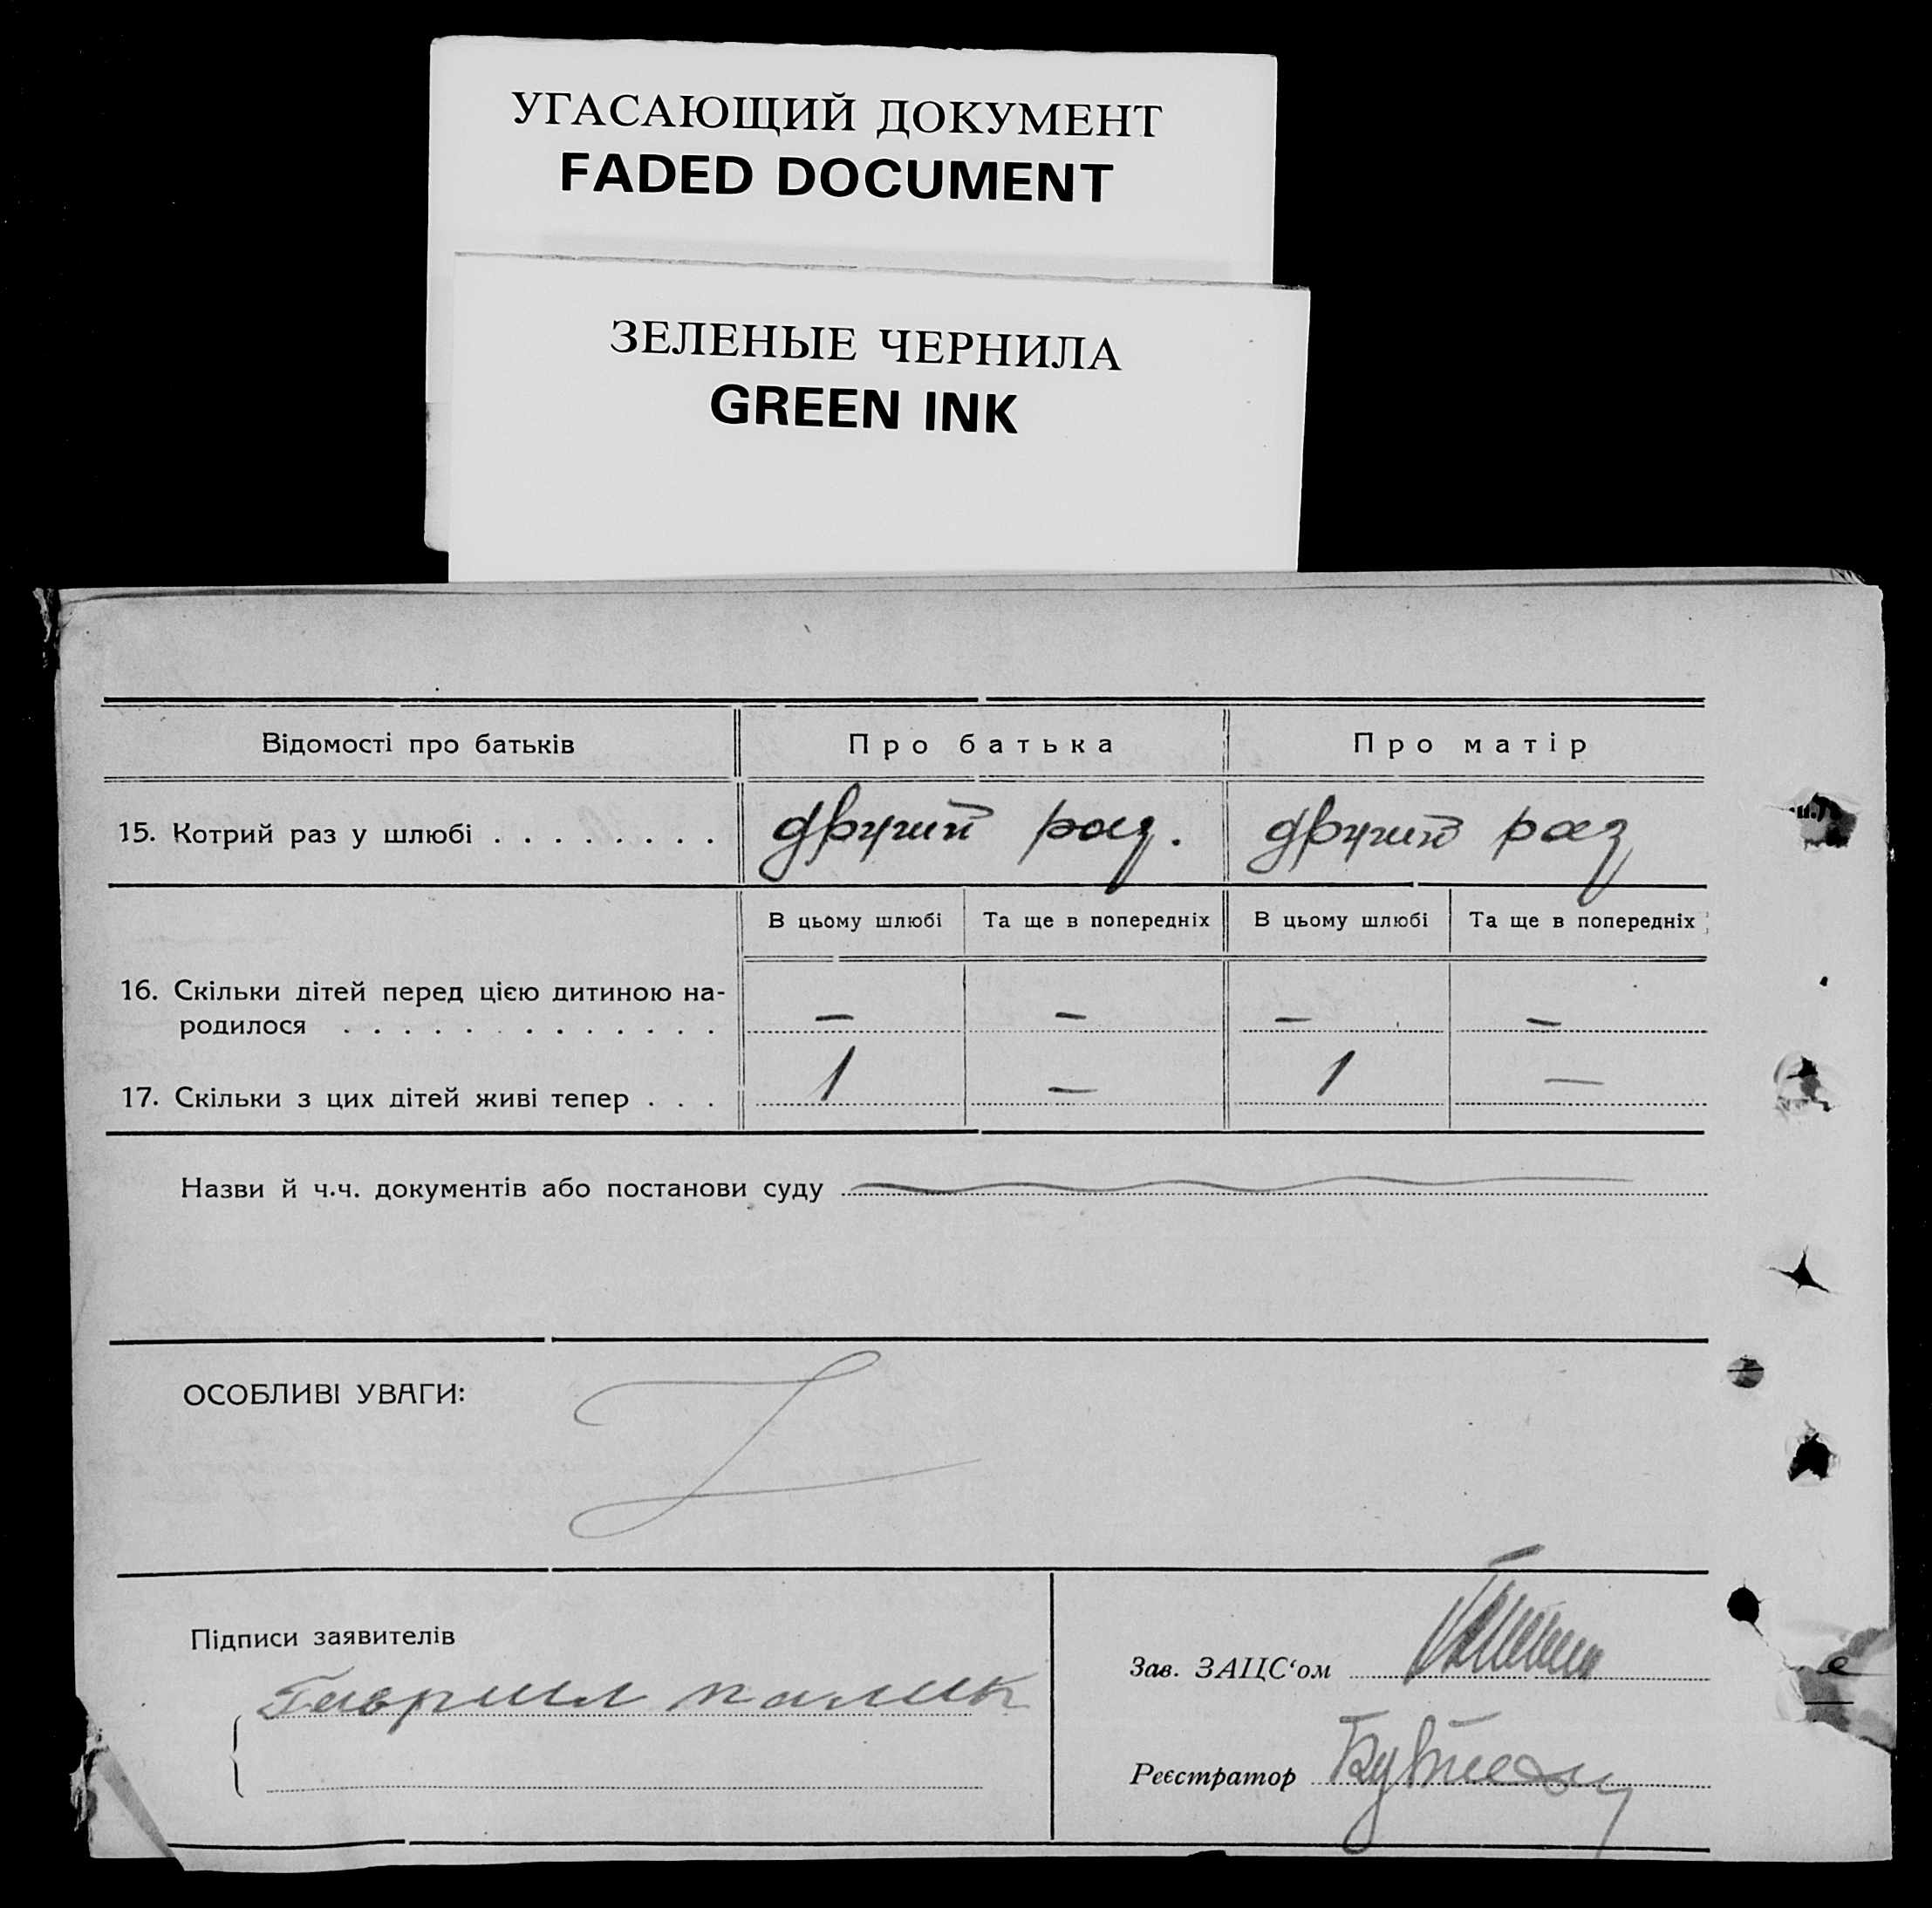 УГАСАЮЩИЙ ДОКУМЕНТ
FADED DOCUMENT
ЗЕЛЕНЫЕ ЧЕРНИЛА
GREEN INK
Відомості про батьків Про батька Про матір
15. Котрий раз у шлюбі . . . . . . . . другий раз. другий раз
В цьому шлюбі Та ще в попередніх В цьому шлюбі Та ще в попередніх
16. Скільки дітей перед цією дитиною на-
родилося . . . . . . . . . . . . . — — — —
17. Скільки з цих дітей живі тепер . . . 1 — 1 —
Назви й ч.ч. документів або постанови суду
ОСОБЛИВІ УВАГИ:
Підписи заявителів
Гаврила
Зав. ЗАЦС‘ом
Реєстратор